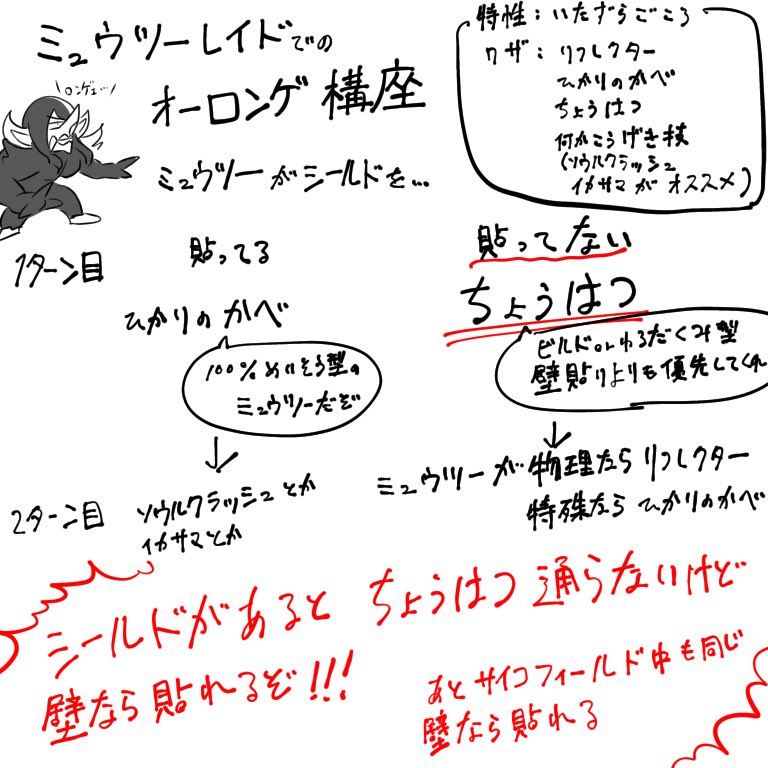 ミュウツーレイドでの
オーロンゲ構座
\ロンゲェ…/
ミュウツーがシールドを…
特性：いたずらごころ
ワザ：リフレクター
ひかりのかべ
ちょうはつ
何かこうげき技
(ソウルクラッシュ
イカサマがオススメ)
1ターン目
貼ってる
ひかりのかべ
100%めいそう型の
ミュウツーだぞ
貼ってない
ちょうはつ
ビルドorわるだくみ型
壁貼りよりも優先してくれ
↓
↓
2ターン目
ソウルクラッシュとか
イカサマとか
ミュウツーが物理ならリフレクター
特殊ならひかりのかべ
シールドがあるとちょうはつ通らないけど
壁なら貼れるぞ!!!
あとサイコフィールド中も同じ
壁なら貼れる